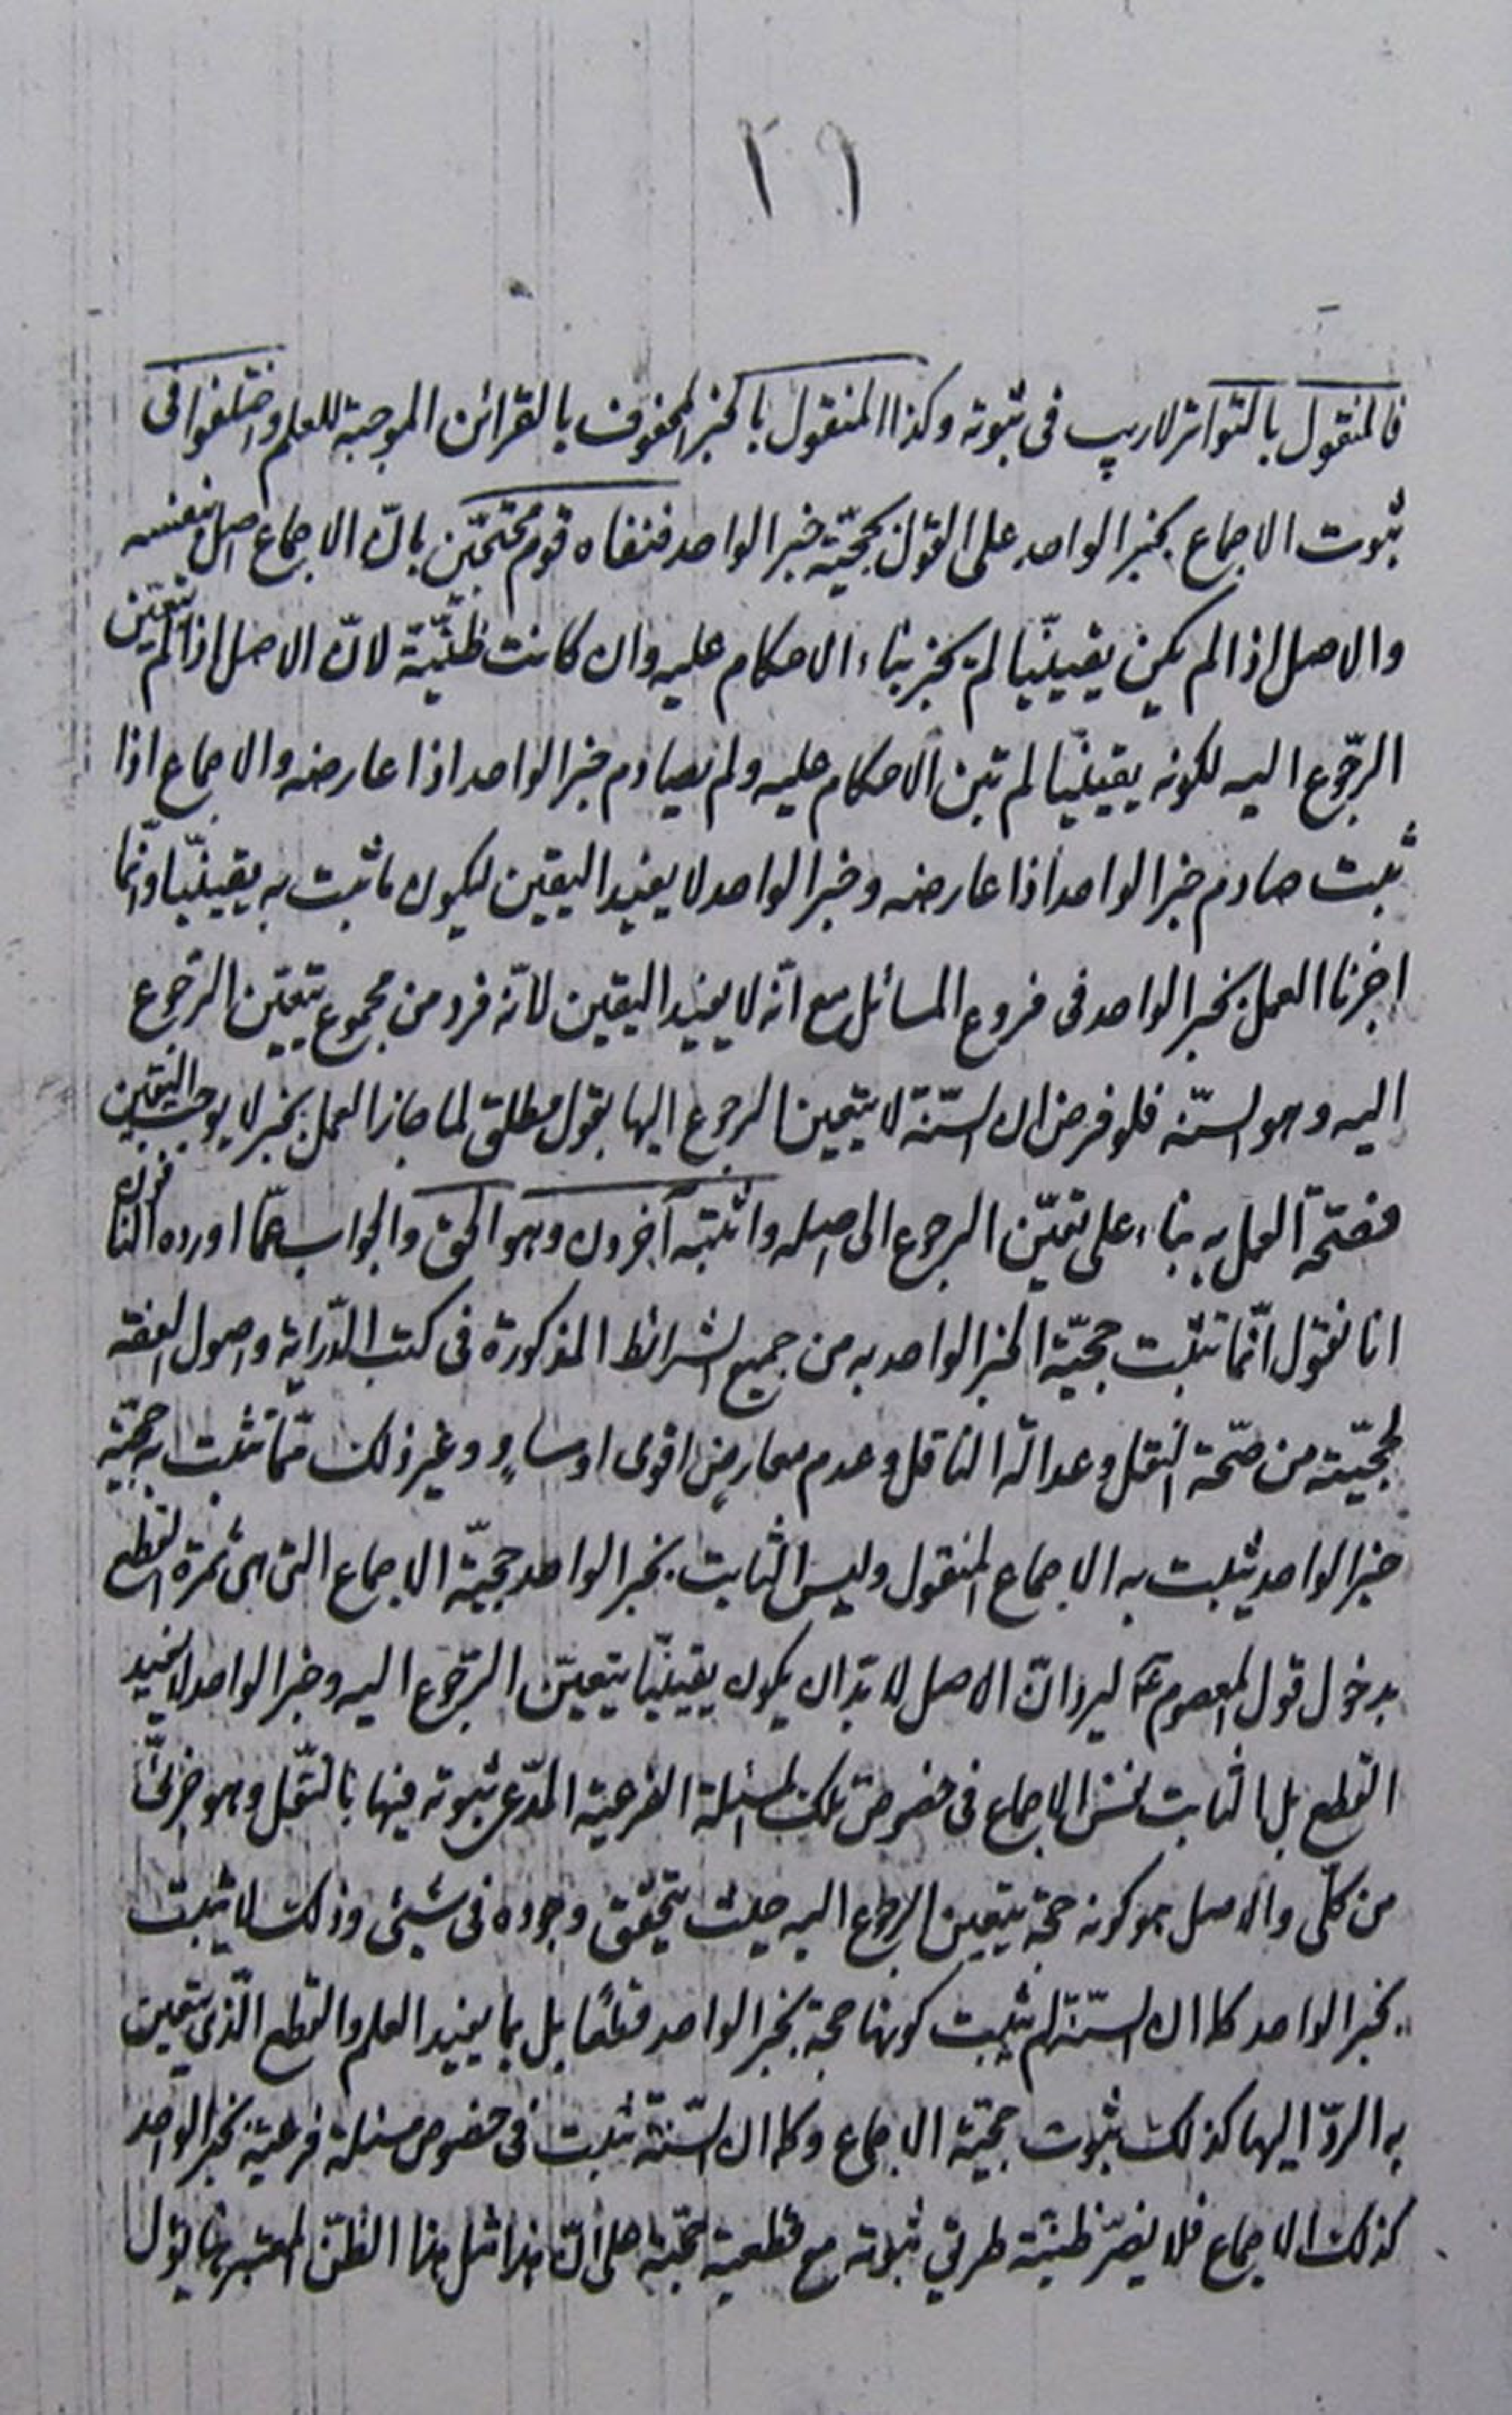 ٢٦
فالمنقول بالتواتر لا ريب فى ثبوته وكذا المنقول بالخبر المحفوف بالقرائن الموجبة للعلم واختلفوا فى
ثبوت الاجماع بخبر الواحد على القول بحجّيّة خبر الواحد فنفاه قوم محتجّين بانّ الاجماع اصل بنفسه
والاصل اذا لم يكن يقينيّا لم يجز بناء الاحكام عليه وان كانت ظنّيّة لانّ الاصل اذا لم يتعيّن
الرّجوع اليه لكونه يقينيّا لم تبن الاحكام عليه ولم يصادم خبر الواحد اذا عارضه والاجماع اذا
ثبت صادم خبر الواحد اذا عارضه وخبر الواحد لا يفيد اليقين ليكون ما ثبت به يقينيّا وانّما
اجزنا العمل بخبر الواحد فى فروع المسائل مع انّه لا يفيد اليقين لانّه فرد من مجموع يتعيّن الرّجوع
اليه وهو السنّه فلو فرض ان السّنّة لا يتعين الرجوع اليها بقول مطلق لما جاز العمل بخبر لا يوجب اليقين
فصحّة العمل به بناء على تعيّن الرجوع الى اصله واثبته آخرون وهو الحق والجواب عمّا اورده النافون
انا نقول انّما تثبت حجيّة الخبر الواحد به من جميع الشرائط المذكورة فى كتب الدّراية واصول الفقه
لحجّيّته من صحّة النقل وعدالة الناقل وعدم معارض اقوى او مساوٍ وغير ذلك ممّا تثبت به حجّيّة
خبر الواحد يثبت به الاجماع المنقول وليس الثابت بخبر الواحد حجيّة الاجماع التى هى ثمرة القطع
بدخول قول المعصوم ع ليرد انّ الاصل لا بدّ ان يكون يقينيّا يتعيّن الرّجوع اليه وخبر الواحد لا يفيد
القطع بل الثابت نفس الاجماع فى خصوص تلك المسئلة الفرعية المدّعى ثبوته فيها بالنّقل وهو جزئىّ
من كلّى والاصل هو كونه حجة يتعين الرجوع اليه حيث يتحقق وجوده فى شيئى وذلك لا يثبت
بخبر الواحد كما ان السّنّة لم يثبت كونها حجة بخبر الواحد قطعًا بل بما يفيد العلم والقطع الّذى يتعين
به الردّ اليها كذلك ثبوت حجيّة الاجماع وكما ان السّنّة تثبت فى خصوص مسئلة فرعيّة بخبر الواحد
كذلك الاجماع فلا يضرّ ظنيّة طريق ثبوته مع قطعية حجّيّته على انّ هذا مثل هذا الظنّ المعتبر يؤل